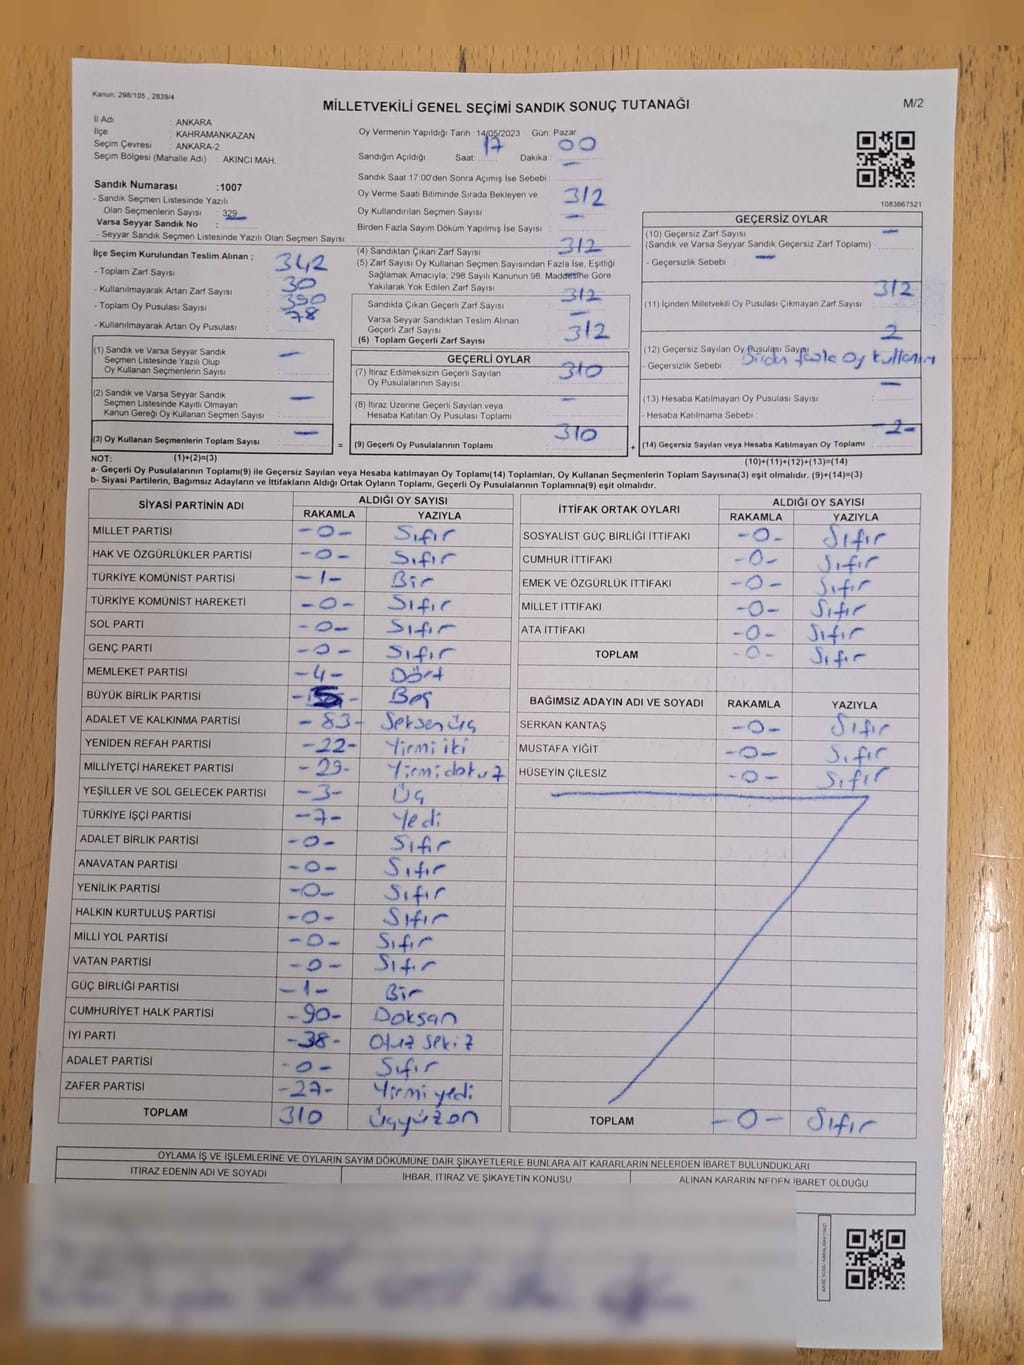 Kanun. 298/105 , 2839/4
MİLLETVEKİLİ GENEL SEÇİMİ SANDIK SONUÇ TUTANAĞI
M/2
İl Adı : ANKARA
İlçe : KAHRAMANKAZAN
Seçim Çevresi : ANKARA-2
Seçim Bölgesi (Mahalle Adı) : AKINCI MAH.
Sandık Numarası :1007
- Sandık Seçmen Listesinde Yazılı
Olan Seçmenlerin Sayısı : 329
Varsa Seyyar Sandık No :
- Seyyar Sandık Seçmen Listesinde Yazılı Olan Seçmen Sayısı:
Oy Vermenin Yapıldığı Tarih : 14/05/2023 Gün: Pazar
Sandığın Açıldığı Saat : 17 Dakika : 00
Sandık Saat 17:00'den Sonra Açımış İse Sebebi : -
Oy Verme Saati Bitiminde Sırada Bekleyen ve
Oy Kullandırılan Seçmen Sayısı : 312
Birden Fazla Sayım Döküm Yapılmış İse Sayısı : -
1083667521
İlçe Seçim Kurulundan Teslim Alınan ;
- Toplam Zarf Sayısı : 342
- Kullanılmayarak Artan Zarf Sayısı : 30
- Toplam Oy Pusulası Sayısı : 390
- Kullanılmayarak Artan Oy Pusulası : 78
(1) Sandık ve Varsa Seyyar Sandık
Seçmen Listesinde Yazılı Olup
Oy Kullanan Seçmenlerin Sayısı : -
(2) Sandık ve Varsa Seyyar Sandık
Seçmen Listesinde Kayıtlı Olmayan
Kanun Gereği Oy Kullanan Seçmen Sayısı : -
(3) Oy Kullanan Seçmenlerin Toplam Sayısı : -
(4) Sandıktan Çıkan Zarf Sayısı : 312
(5) Zarf Sayısı Oy Kullanan Seçmen Sayısından Fazla İse, Eşitliği
Sağlamak Amacıyla, 298 Sayılı Kanunun 98. Maddesine Göre
Yakılarak Yok Edilen Zarf Sayısı : -
Sandıkta Çıkan Geçerli Zarf Sayısı : 312
Varsa Seyyar Sandıktan Teslim Alınan
Geçerli Zarf Sayısı : -
(6) Toplam Geçerli Zarf Sayısı : 312
GEÇERLİ OYLAR
(7) İtiraz Edilmeksizin Geçerli Sayılan
Oy Pusulalarının Sayısı : 310
(8) İtiraz Üzerine Geçerli Sayılan veya
Hesaba Katılan Oy Pusulası Toplamı : -
= (9) Geçerli Oy Pusulalarının Toplamı : 310
GEÇERSİZ OYLAR
(10) Geçersiz Zarf Sayısı : -
(Sandık ve Varsa Seyyar Sandık Geçersiz Zarf Toplamı)
- Geçersizlik Sebebi : -
(11) İçinden Milletvekili Oy Pusulası Çıkmayan Zarf Sayısı : 312
(12) Geçersiz Sayılan Oy Pusulası Sayısı : 2
- Geçersizlik Sebebi : Birden fazla oy kullanım
(13) Hesaba Katılmayan Oy Pusulası Sayısı : -
- Hesaba Katılmama Sebebi :
+ (14) Geçersiz Sayılan veya Hesaba Katılmayan Oy Toplamı : -2-
NOT: (1)+(2)=(3)
(10)+(11)+(12)+(13)=(14)
a- Geçerli Oy Pusulalarının Toplamı(9) ile Geçersiz Sayılan veya Hesaba katılmayan Oy Toplamı(14) Toplamları, Oy Kullanan Seçmenlerin Toplam Sayısına(3) eşit olmalıdır. (9)+(14)=(3)
b- Siyasi Partilerin, Bağımsız Adayların ve İttifakların Aldığı Ortak Oyların Toplamı, Geçerli Oy Pusulalarının Toplamına(9) eşit olmalıdır.
SİYASİ PARTİNİN ADI ALDIĞI OY SAYISI
RAKAMLA YAZIYLA
MİLLET PARTİSİ -0- Sıfır
HAK VE ÖZGÜRLÜKLER PARTİSİ -0- Sıfır
TÜRKİYE KOMÜNİST PARTİSİ -1- Bir
TÜRKİYE KOMÜNİST HAREKETİ -0- Sıfır
SOL PARTİ -0- Sıfır
GENÇ PARTİ -0- Sıfır
MEMLEKET PARTİSİ -4- Dört
BÜYÜK BİRLİK PARTİSİ -5- Beş
ADALET VE KALKINMA PARTİSİ -83- Seksenüç
YENİDEN REFAH PARTİSİ -22- Yirmi iki
MİLLİYETÇİ HAREKET PARTİSİ -29- Yirmidokuz
YEŞİLLER VE SOL GELECEK PARTİSİ -3- Üç
TÜRKİYE İŞÇİ PARTİSİ -7- Yedi
ADALET BİRLİK PARTİSİ -0- Sıfır
ANAVATAN PARTİSİ -0- Sıfır
YENİLİK PARTİSİ -0- Sıfır
HALKIN KURTULUŞ PARTİSİ -0- Sıfır
MİLLİ YOL PARTİSİ -0- Sıfır
VATAN PARTİSİ -0- Sıfır
GÜÇ BİRLİĞİ PARTİSİ -1- Bir
CUMHURİYET HALK PARTİSİ -90- Doksan
İYİ PARTİ -38- Otuz sekiz
ADALET PARTİSİ -0- Sıfır
ZAFER PARTİSİ -27- Yirmi yedi
TOPLAM 310 Üçyüzon
İTTİFAK ORTAK OYLARI ALDIĞI OY SAYISI
RAKAMLA YAZIYLA
SOSYALİST GÜÇ BİRLİĞİ İTTİFAKI -0- Sıfır
CUMHUR İTTİFAKI -0- Sıfır
EMEK VE ÖZGÜRLÜK İTTİFAKI -0- Sıfır
MİLLET İTTİFAKI -0- Sıfır
ATA İTTİFAKI -0- Sıfır
TOPLAM -0- Sıfır
BAĞIMSIZ ADAYIN ADI VE SOYADI RAKAMLA YAZIYLA
SERKAN KANTAŞ -0- Sıfır
MUSTAFA YİĞİT -0- Sıfır
HÜSEYİN ÇİLESİZ -0- Sıfır
TOPLAM -0- Sıfır
OYLAMA İŞ VE İŞLEMLERİNE VE OYLARIN SAYIM DÖKÜMÜNE DAİR ŞİKAYETLERLE BUNLARA AİT KARARLARIN NELERDEN İBARET BULUNDUKLARI
İTİRAZ EDENİN ADI VE SOYADI İHBAR, İTİRAZ VE ŞİKAYETİN KONUSU ALINAN KARARIN NEDEN İBARET OLDUĞU